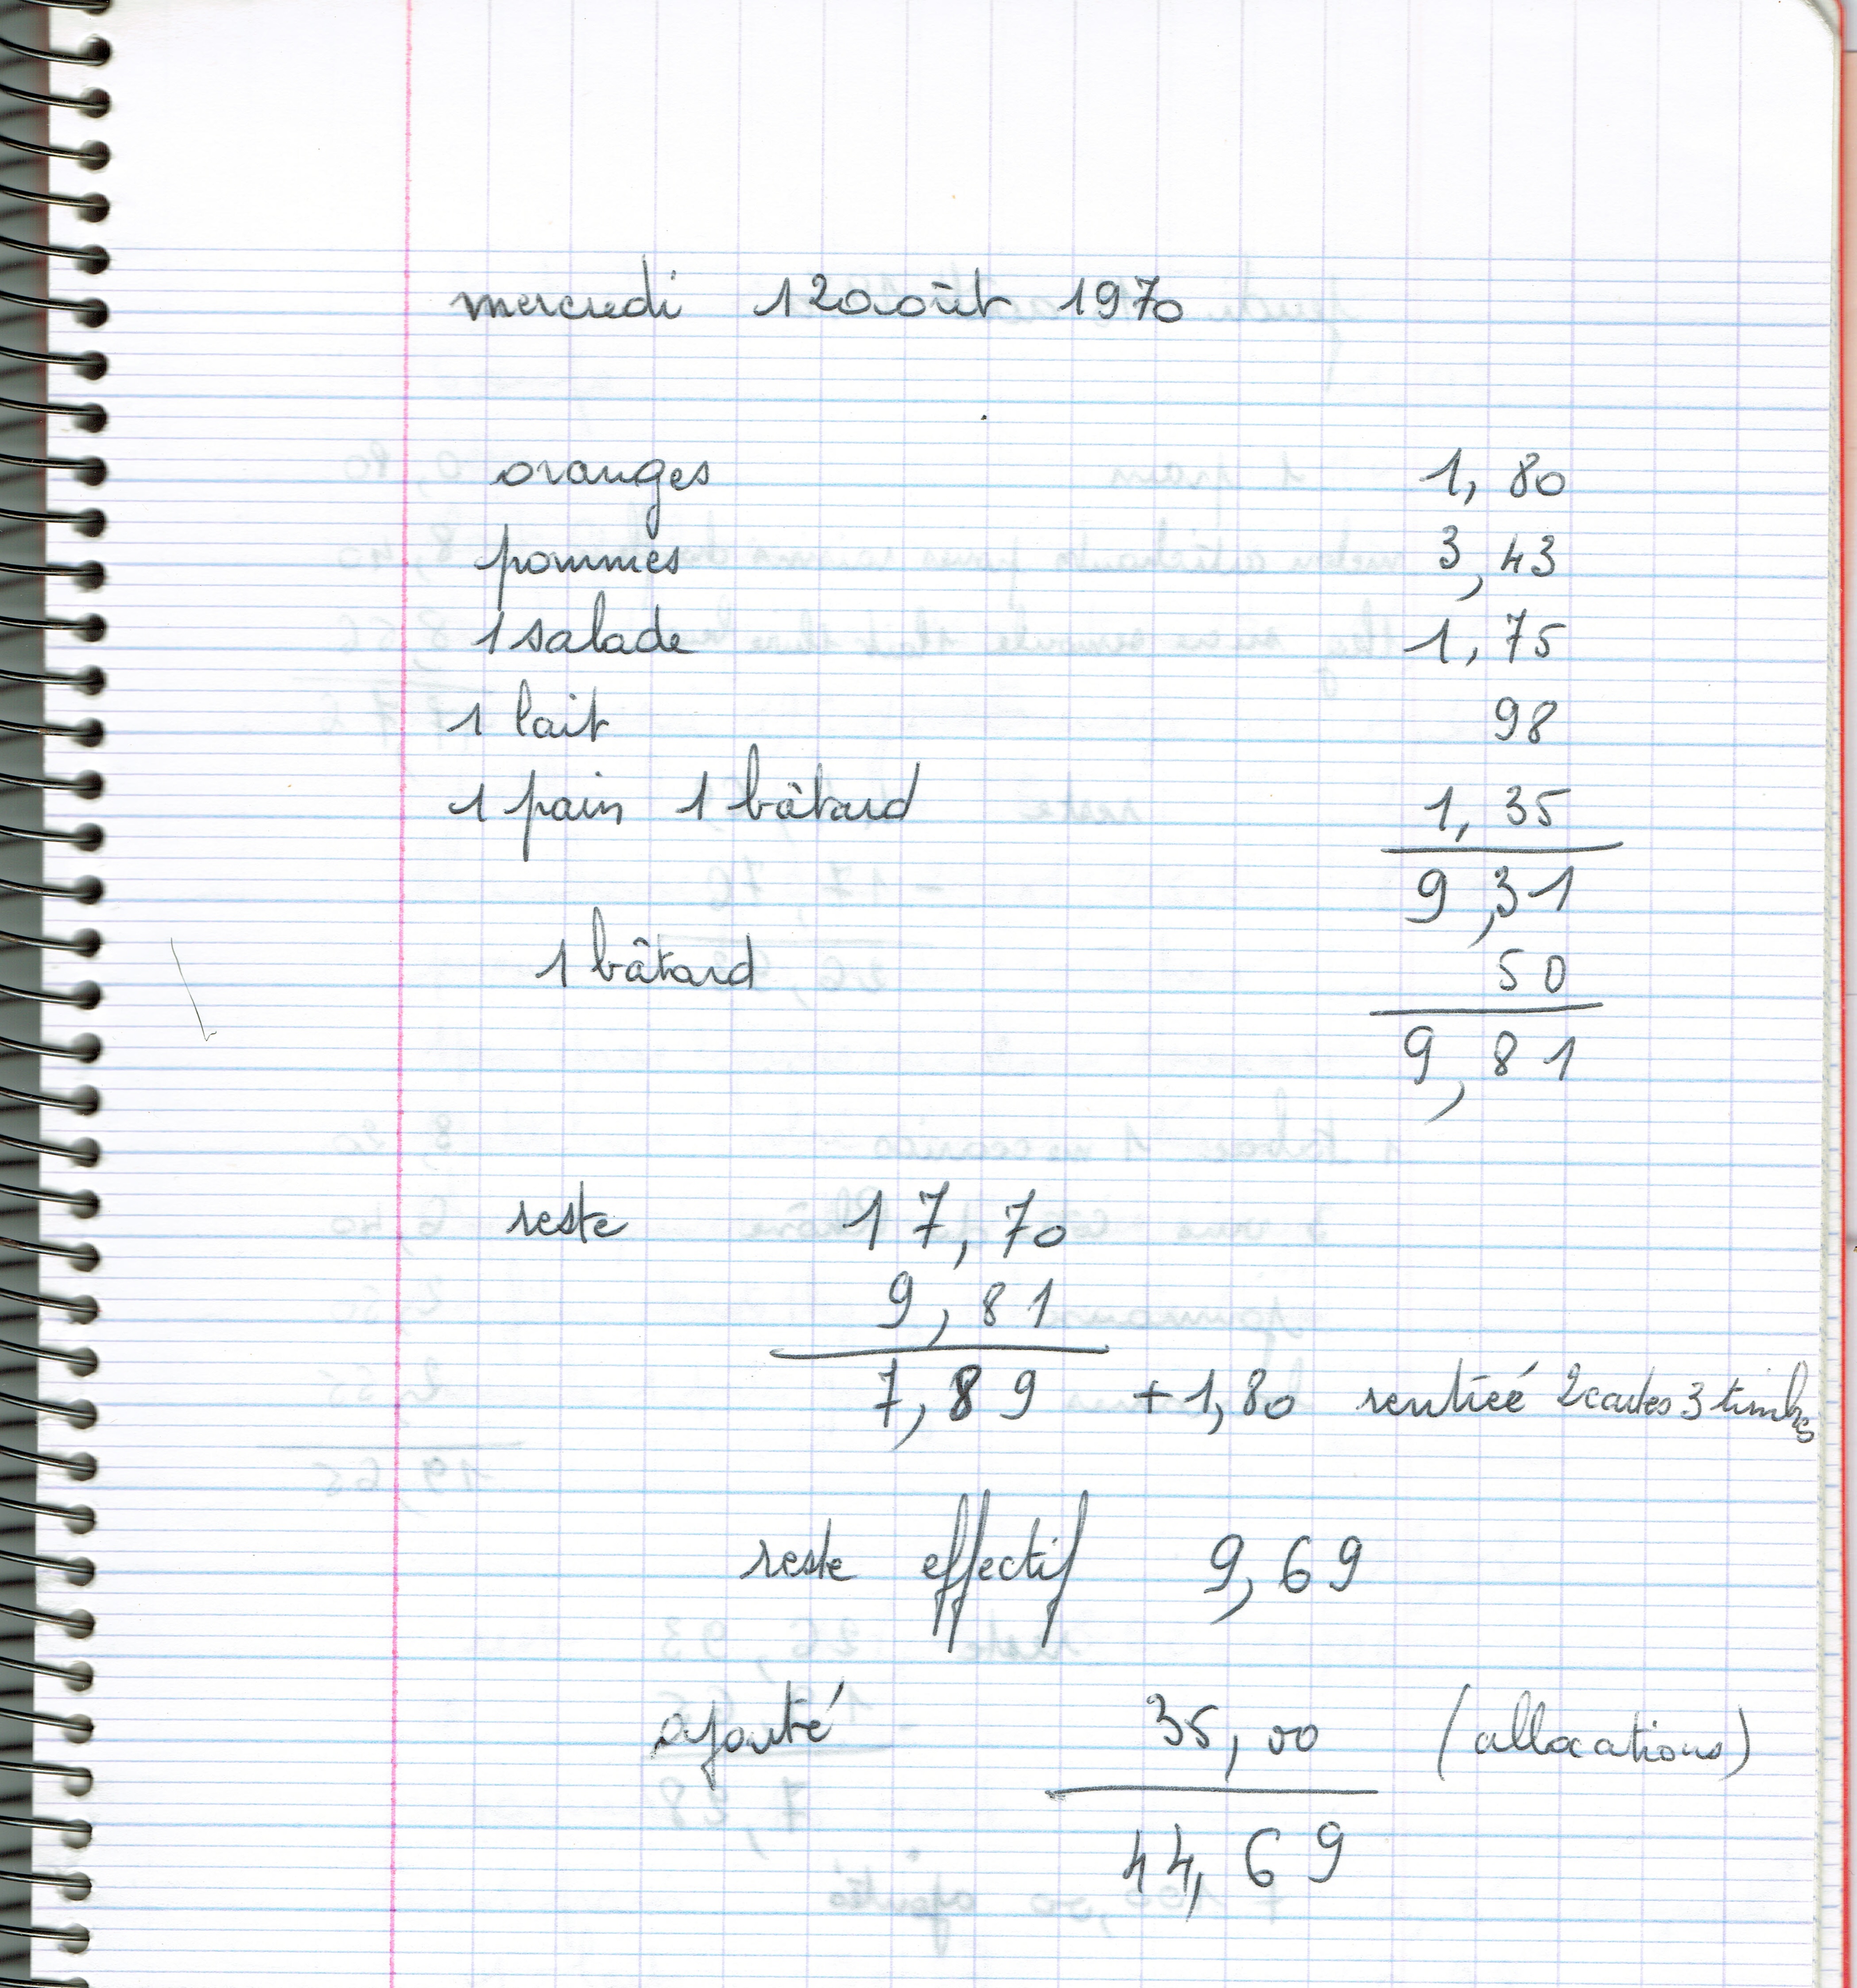 mercredi 12 août 1970
oranges 1,80
pommes 3,43
1 salade 1,75
1 lait 98
1 pain 1 bâtard 1,35
9,31
1 bâtard 50
9,81
reste 17,70
9,81
7,89 +1,80 rentréé 2 cartes 3 timbs
reste effectif 9,69
ajouté 35,00 (allocations)
44,69